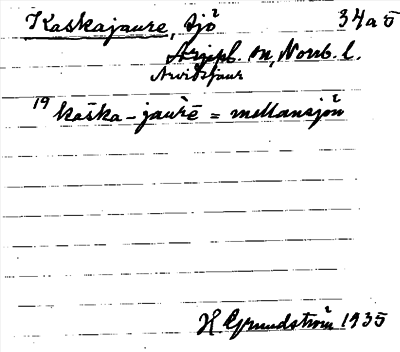 Kaskajaure, sjö 34a5
Arjepl. sn, Norrb. l.
Arvidsjaur
19 kaska-jaurē = mellansjön
H Grundström 1935